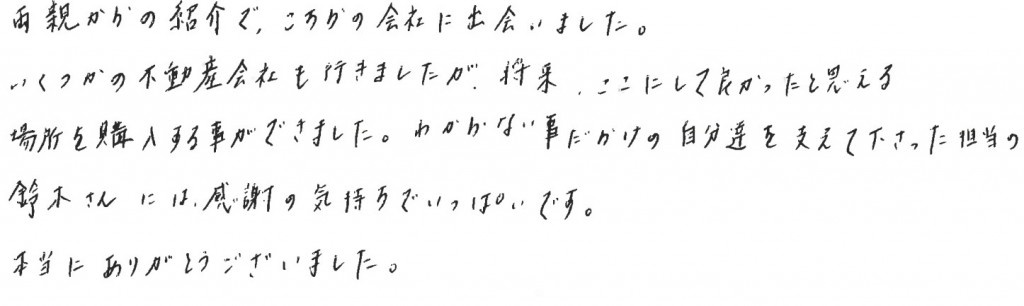 両親からの紹介で、こちらの会社に出会いました。
いくつかの不動産会社も行きましたが、将来、ここにして良かったと思える
場所を購入する事ができました。わからない事だらけの自分達を支えて下さった担当の
鈴木さんには、感謝の気持ちでいっぱいです。
本当にありがとうございました。